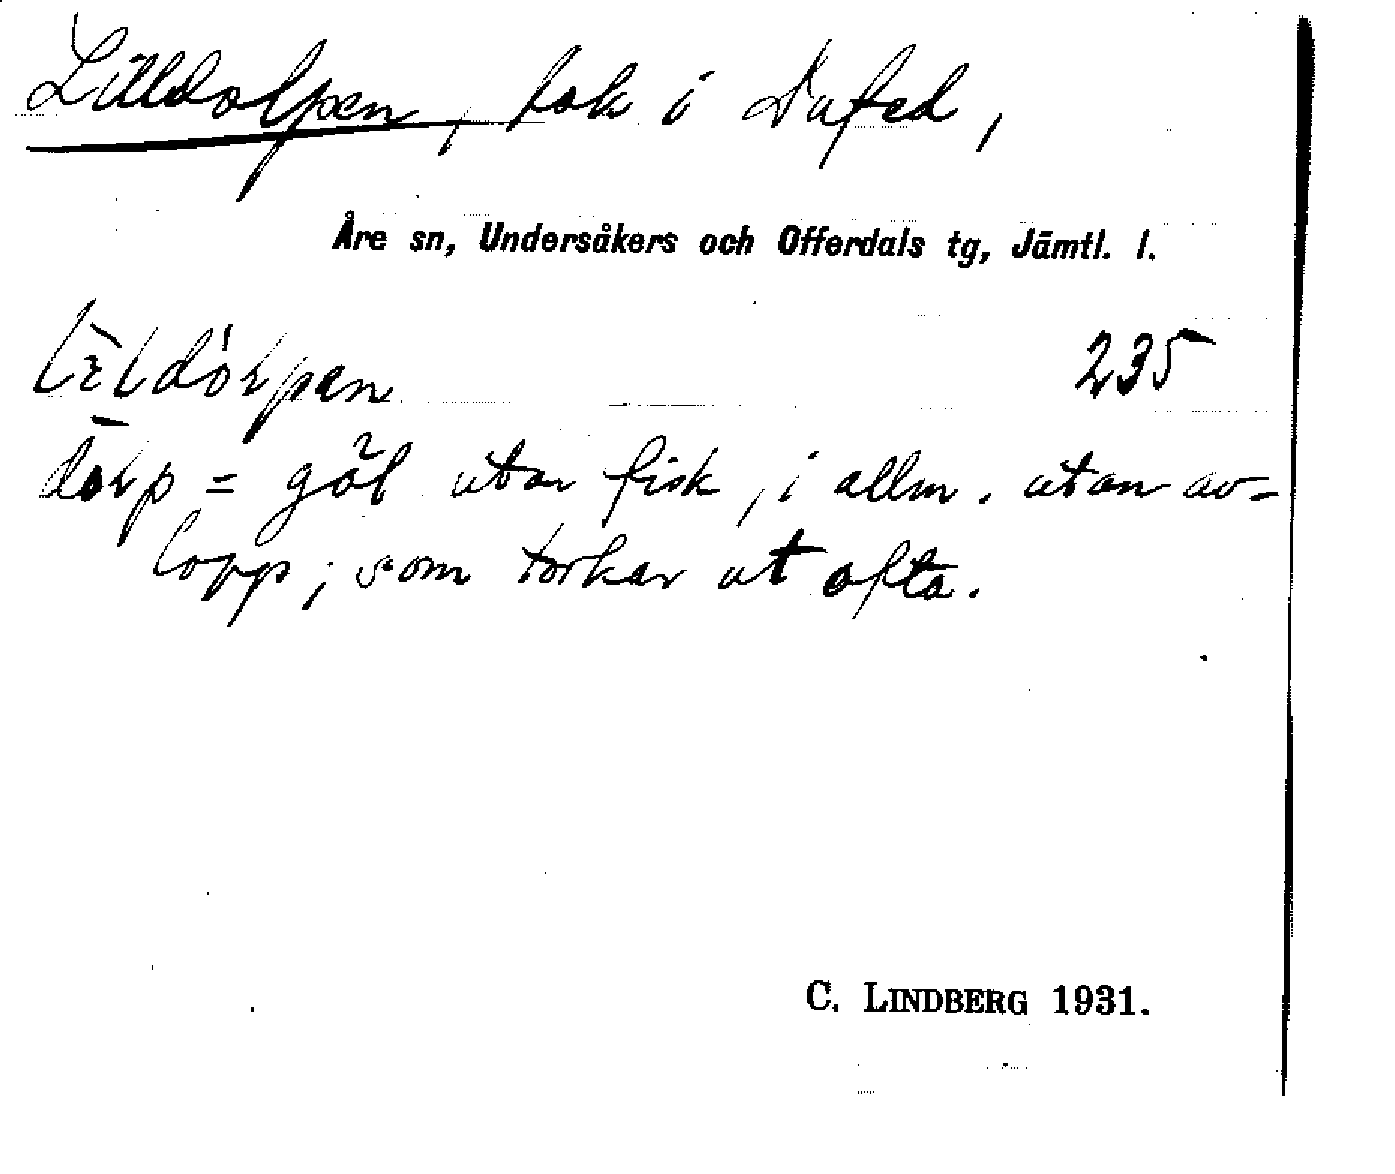 Lilldolpen, lok i Dufed,
Åre sn, Undersåkers och Offerdals tg, Jämtl. l.
235
= göl utan fisk, i allm. utan av-
lopp; som torkar ut ofta.
C. LINDBERG 1931.